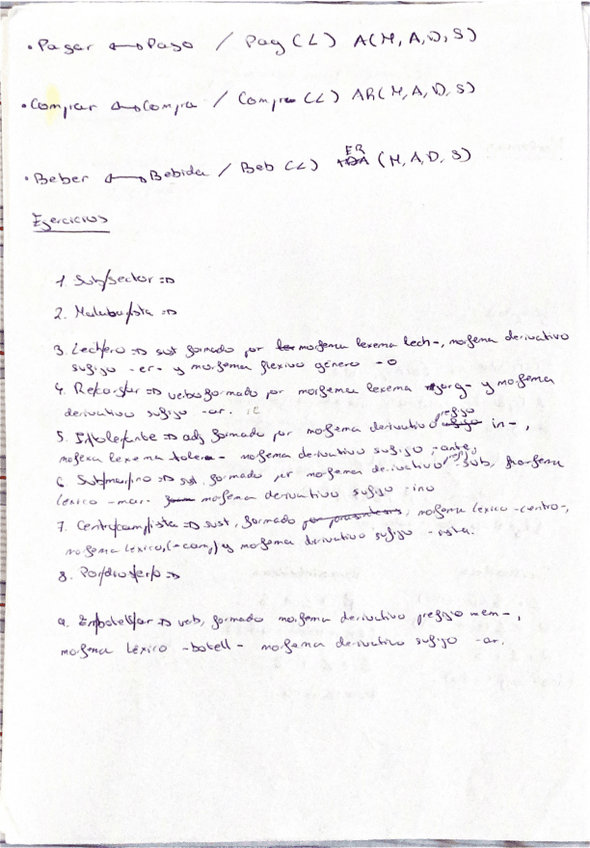 • Pagar ↔ Pago / Pag (L) A (M, A, D, S)
• Comprar ↔ Compra / Compra (L) AR (M, A, D, S)
ER
• Beber ↔ Bebida / Beb (L) (M, A, D, S)
Ejercicios
1. Sub/sector ⇒
2. Malabar/ista ⇒
3. Lech/ero ⇒ sust formado por morfema lexema lech-, morfema derivativo
sufijo -er- y morfema flexivo género -o
4. ⇒ verbo formado por morfema lexema y morfema
derivativo sufijo -ar.
prefijo
5. ⇒ adj formado por morfema derivativo in-,
lexema tolera- morfema derivativo sufijo -ante,
prefijo
6 Submar/ino ⇒ sust. formado por morfema derivativo -sub, morfema
léxico -mar. morfema derivativo sufijo -ino
7. Centro/camp/ista ⇒ sust, formado morfema léxico -centro-,
morfema léxico, (-camp) y morfema derivativo sufijo -ista.
8. ⇒
9. En/botell/ar ⇒ verb, formado morfema derivativo prefijo em-,
morfema léxico -botell- morfema derivativo sufijo -ar.